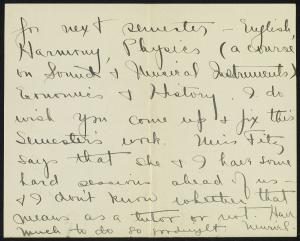 for next semester - English,
Harmony, Physics (a course
on Sound & Musical Instruments)
Economics & History. I do
wish you come up & fix this
Semester's work. Miss Fitz
says that she & I have some
hard sessions ahead of us -
& I don't know whether that
means as a tutor or not. Have
much to do so goodnight. Muriel.